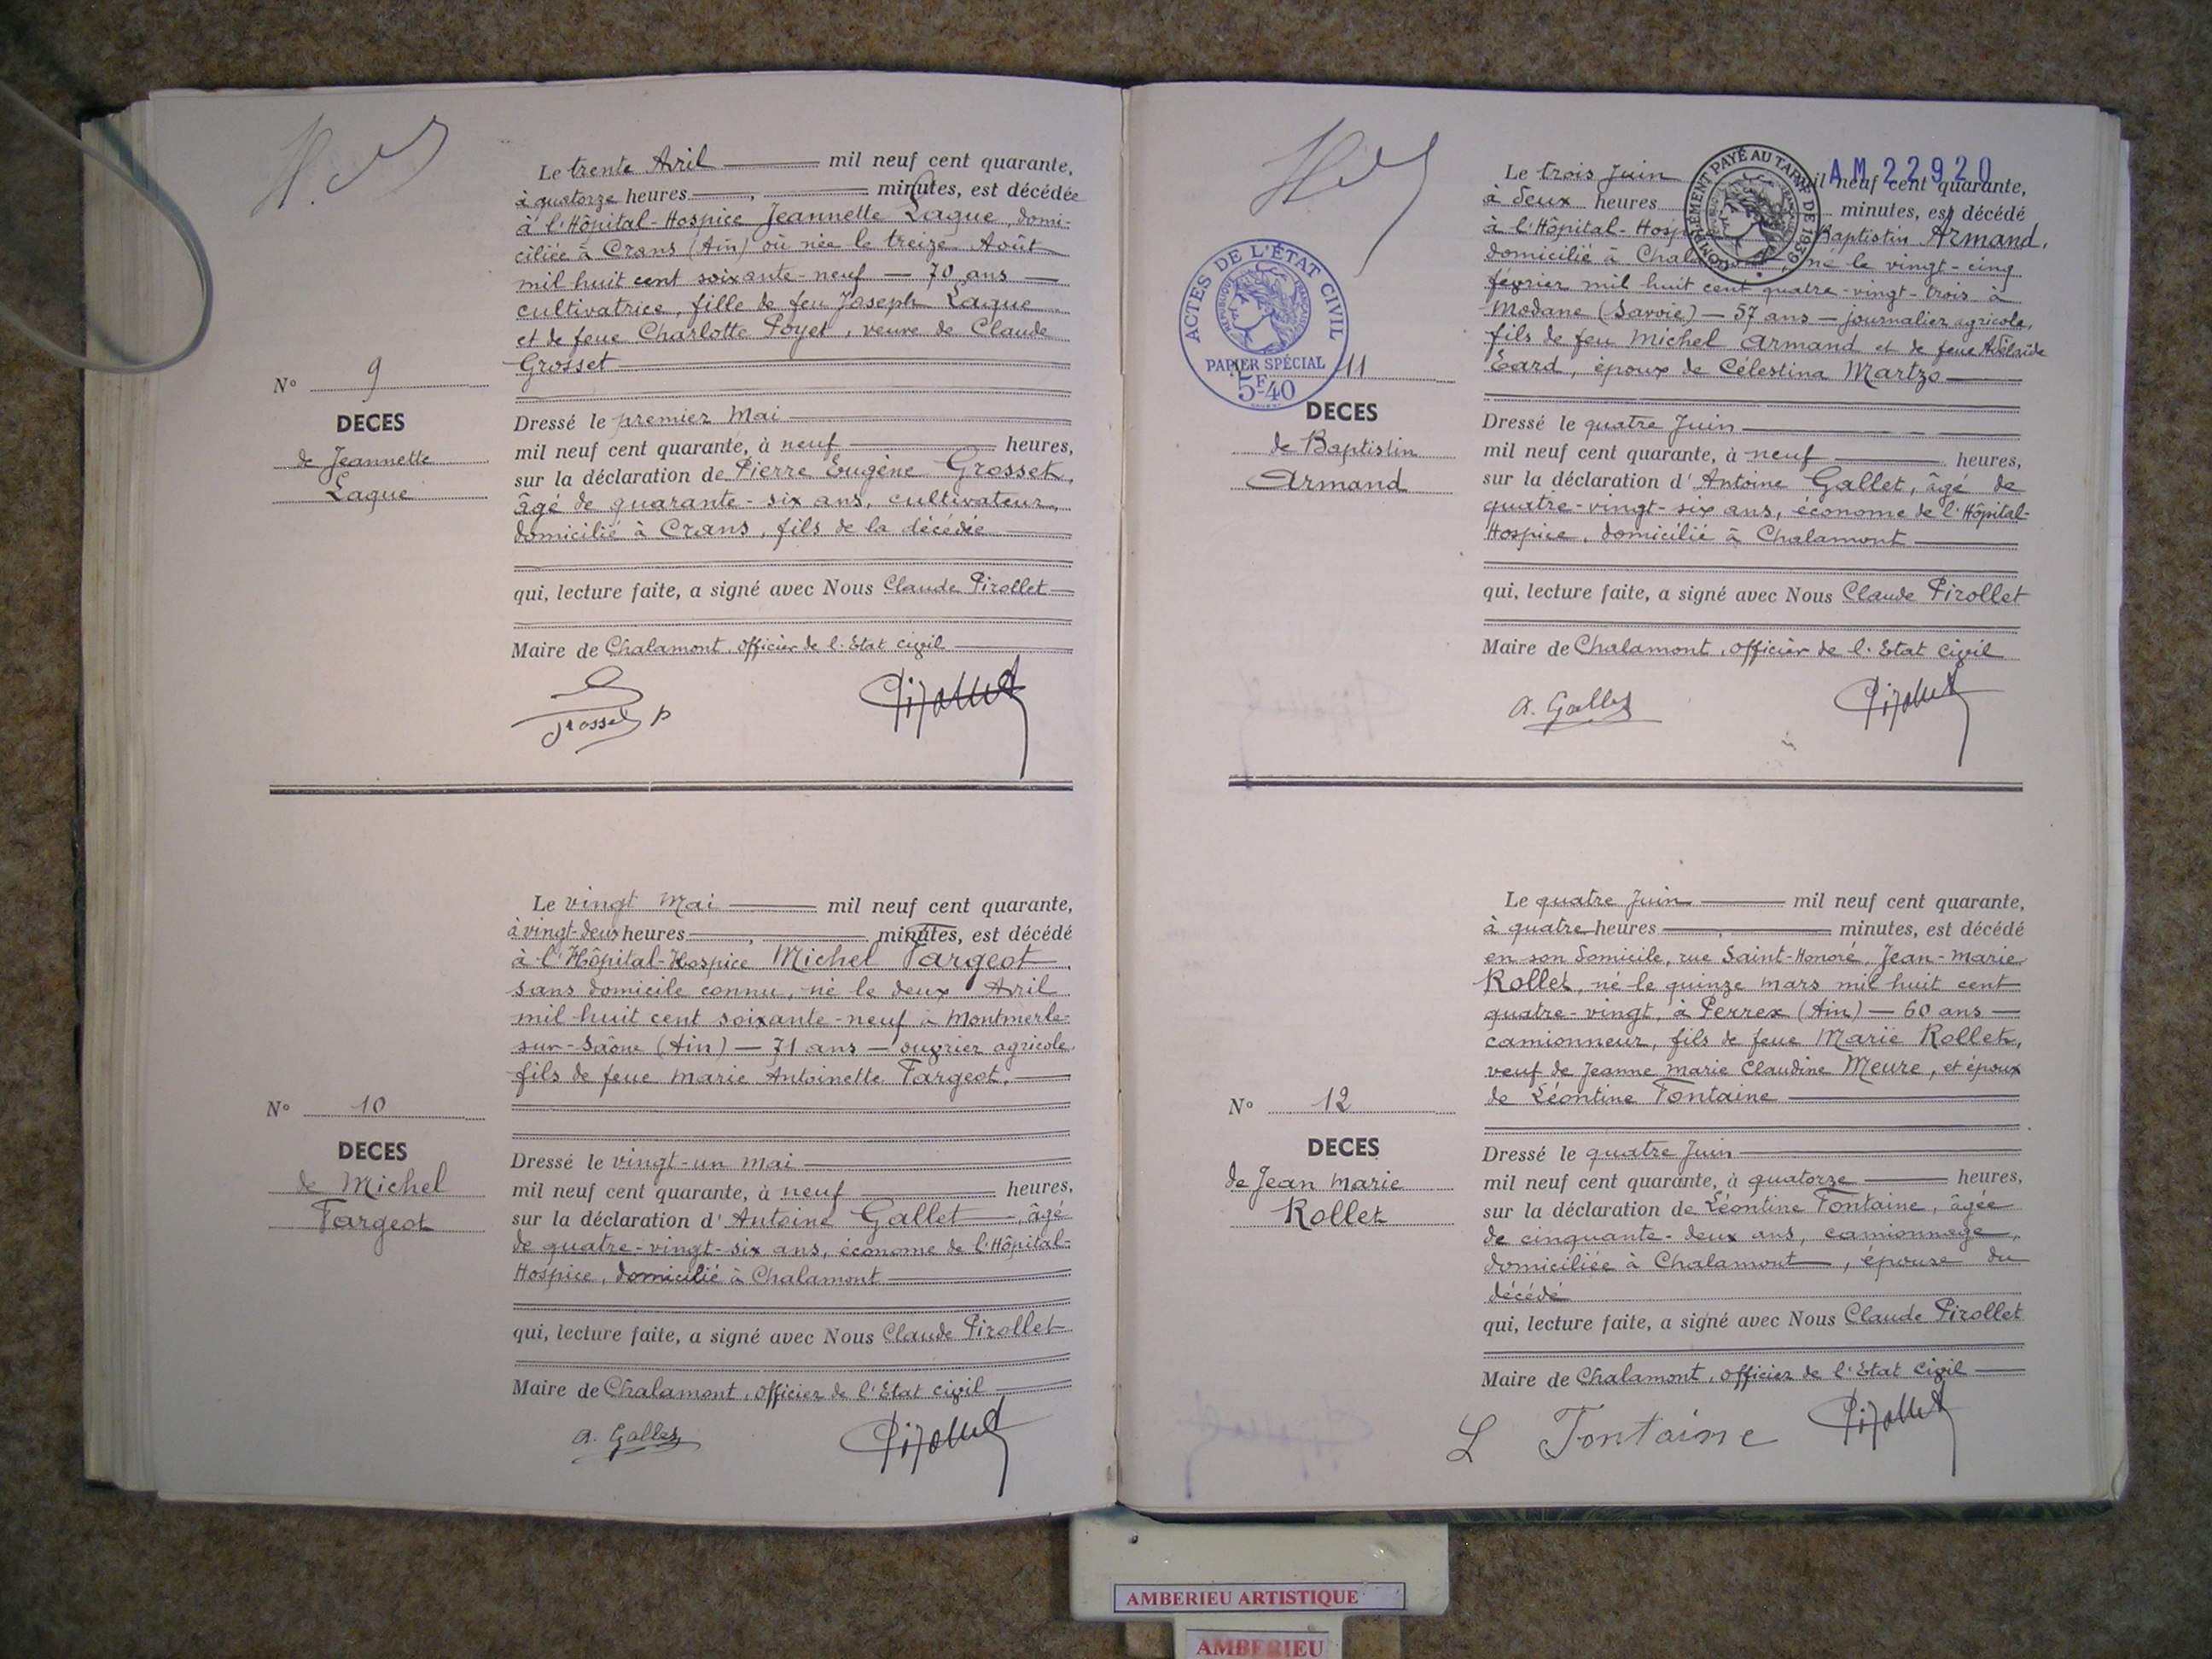 Le trente Avril mil neuf cent quarante,
à quatorze heures, minutes, est décédée
à l'Hôpital-Hospice Jeannette Laque, domi-
ciliée à Crans (Ain) où née le treize Août
mil huit cent soixante-neuf — 70 ans —
cultivatrice, fille de feu Joseph Laque
et de feue Charlotte Poyet, veuve de Claude
Grosset
N° 9
DECES
de Jeannette
Laque
Dressé le premier Mai
mil neuf cent quarante, à neuf heures,
sur la déclaration de Pierre Eugène Grosset,
âgé de quarante-six ans, cultivateur,
domicilié à Crans, fils de la décédée
qui, lecture faite, a signé avec Nous Claude Pirollet
Maire de Chalamont, officier de l'Etat civil
Grosset P
Pirollet
Le vingt Mai mil neuf cent quarante,
à vingt-deux heures, minutes, est décédé
à l'Hôpital-Hospice Michel Fargeot
sans domicile connu, né le deux Avril
mil huit cent soixante-neuf à Montmerle-
sur-Saône (Ain) — 71 ans — ouvrier agricole,
fils de feue Marie Antoinette Fargeot.
N° 10
DECES
de Michel
Fargeot
Dressé le vingt-un Mai
mil neuf cent quarante, à neuf heures,
sur la déclaration d'Antoine Gallet, âgé
de quatre-vingt-six ans, économe de l'Hôpital-
Hospice, domicilié à Chalamont
qui, lecture faite, a signé avec Nous Claude Pirollet
Maire de Chalamont, officier de l'Etat civil
A. Gallet
Pirollet
AM 22920
COMPLÉMENT PAYÉ AU TARIF DE 1939
ACTES DE L'ÉTAT CIVIL
RÉPUBLIQUE FRANÇAISE
PAPIER SPÉCIAL
5F40
Le trois Juin mil neuf cent quarante,
à deux heures minutes, est décédé
à l'Hôpital-Hospice Baptistin Armand,
domicilié à Chalamont, né le vingt-cinq
février mil huit cent quatre-vingt-trois à
Modane (Savoie) — 57 ans — journalier agricole,
fils de feu Michel Armand et de feue Adélaïde
Eard, époux de Célestina Martzo
11
DECES
de Baptistin
Armand
Dressé le quatre Juin
mil neuf cent quarante, à neuf heures,
sur la déclaration d'Antoine Gallet, âgé de
quatre-vingt-six ans, économe de l'Hôpital-
Hospice, domicilié à Chalamont
qui, lecture faite, a signé avec Nous Claude Pirollet
Maire de Chalamont, officier de l'Etat civil
A. Gallet
Pirollet
Le quatre Juin mil neuf cent quarante,
à quatre heures, minutes, est décédé
en son domicile, rue Saint-Honoré, Jean-Marie
Rollet, né le quinze mars mil huit cent
quatre-vingt, à Perrex (Ain) — 60 ans —
camionneur, fils de feue Marie Rollet,
veuf de Jeanne Marie Claudine Meure, et époux
de Léontine Fontaine
N° 12
DECES
de Jean Marie
Rollet
Dressé le quatre Juin
mil neuf cent quarante, à quatorze heures,
sur la déclaration de Léontine Fontaine, âgée
de cinquante-deux ans, camionnage,
domiciliée à Chalamont, épouse du
décédé
qui, lecture faite, a signé avec Nous Claude Pirollet
Maire de Chalamont, officier de l'Etat civil
L Fontaine
Pirollet
AMBERIEU ARTISTIQUE
AMBERIEU